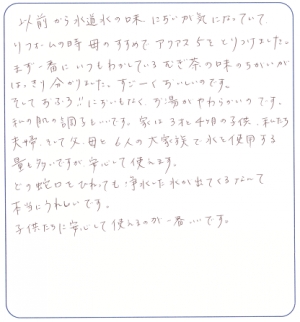 以前から水道水の味 においが気になっていて、
リフォームの時 母のすすめで アクアス5を とりつけました。
まず一番に いつもわかしている むぎ茶の味のちがいが
はっきり分かりました。すごーくおいしいのです。
そしておふろ!! においもなく、お湯がやわらかいのです。
私の肌の調子もいいです。家は3才と4ヶ月の子供、私たち
夫婦、そして父、母と6人の大家族で水を使用する
量も多いですが安心して使えます。
どの蛇口をひねっても浄水した水が出てくるなんて
本当にうれしいです。
子供たちに安心して使えるのが一番いいです。